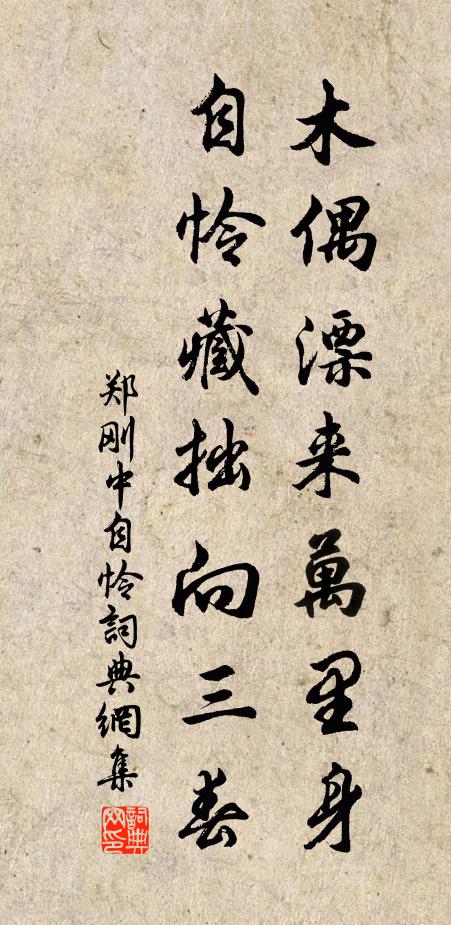 木偶漂来萬里身
自怜藏拙向三春
郑刚中自怜詞典網集
詞典网印